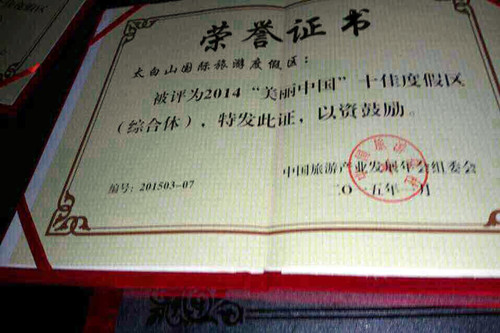 荣誉证书
太白山国际旅游度假区：
被评为2014“美丽中国”十佳度假区
（综合体），特发此证，以资鼓励。
中国旅游产业发展年会组委会
编号：201503-07
二〇一五年 月